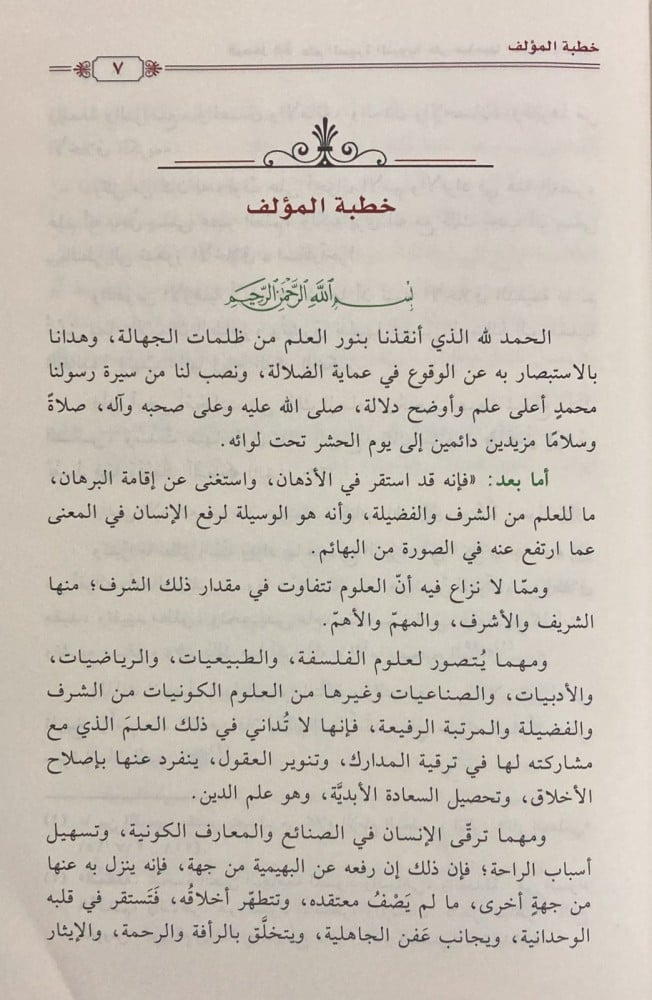 خطبة المؤلف
٧
خطبة المؤلف
بسم الله الرحمن الرحيم
الحمد لله الذي أنقذنا بنور العلم من ظلمات الجهالة، وهدانا
بالاستبصار به عن الوقوع في عماية الضلالة، ونصب لنا من سيرة رسولنا
محمدٍ أعلى علم وأوضح دلالة، صلى الله عليه وعلى صحبه وآله، صلاةً
وسلامًا مزيدين دائمين إلى يوم الحشر تحت لوائه.
أما بعد: «فإنه قد استقر في الأذهان، واستغنى عن إقامة البرهان،
ما للعلم من الشرف والفضيلة، وأنه هو الوسيلة لرفع الإنسان في المعنى
عما ارتفع عنه في الصورة من البهائم.
وممّا لا نزاع فيه أنّ العلوم تتفاوت في مقدار ذلك الشرف؛ منها
الشريف والأشرف، والمهمّ والأهمّ.
ومهما يُتصور لعلوم الفلسفة، والطبيعيات، والرياضيات،
والأدبيات، والصناعيات وغيرها من العلوم الكونيات من الشرف
والفضيلة والمرتبة الرفيعة، فإنها لا تُداني في ذلك العلمَ الذي مع
مشاركته لها في ترقية المدارك، وتنوير العقول، ينفرد عنها بإصلاح
الأخلاق، وتحصيل السعادة الأبديَّة، وهو علم الدين.
ومهما ترقّى الإنسان في الصنائع والمعارف الكونية، وتسهيل
أسباب الراحة؛ فإن ذلك إن رفعه عن البهيمية من جهة، فإنه ينزل به عنها
من جهةٍ أخرى، ما لم يَصْفُ معتقده، وتتطهّر أخلاقُه، فَتَستقر في قلبه
الوحدانية، ويجانب عَفن الجاهلية، ويتخلَّق بالرأفة والرحمة، والإيثار